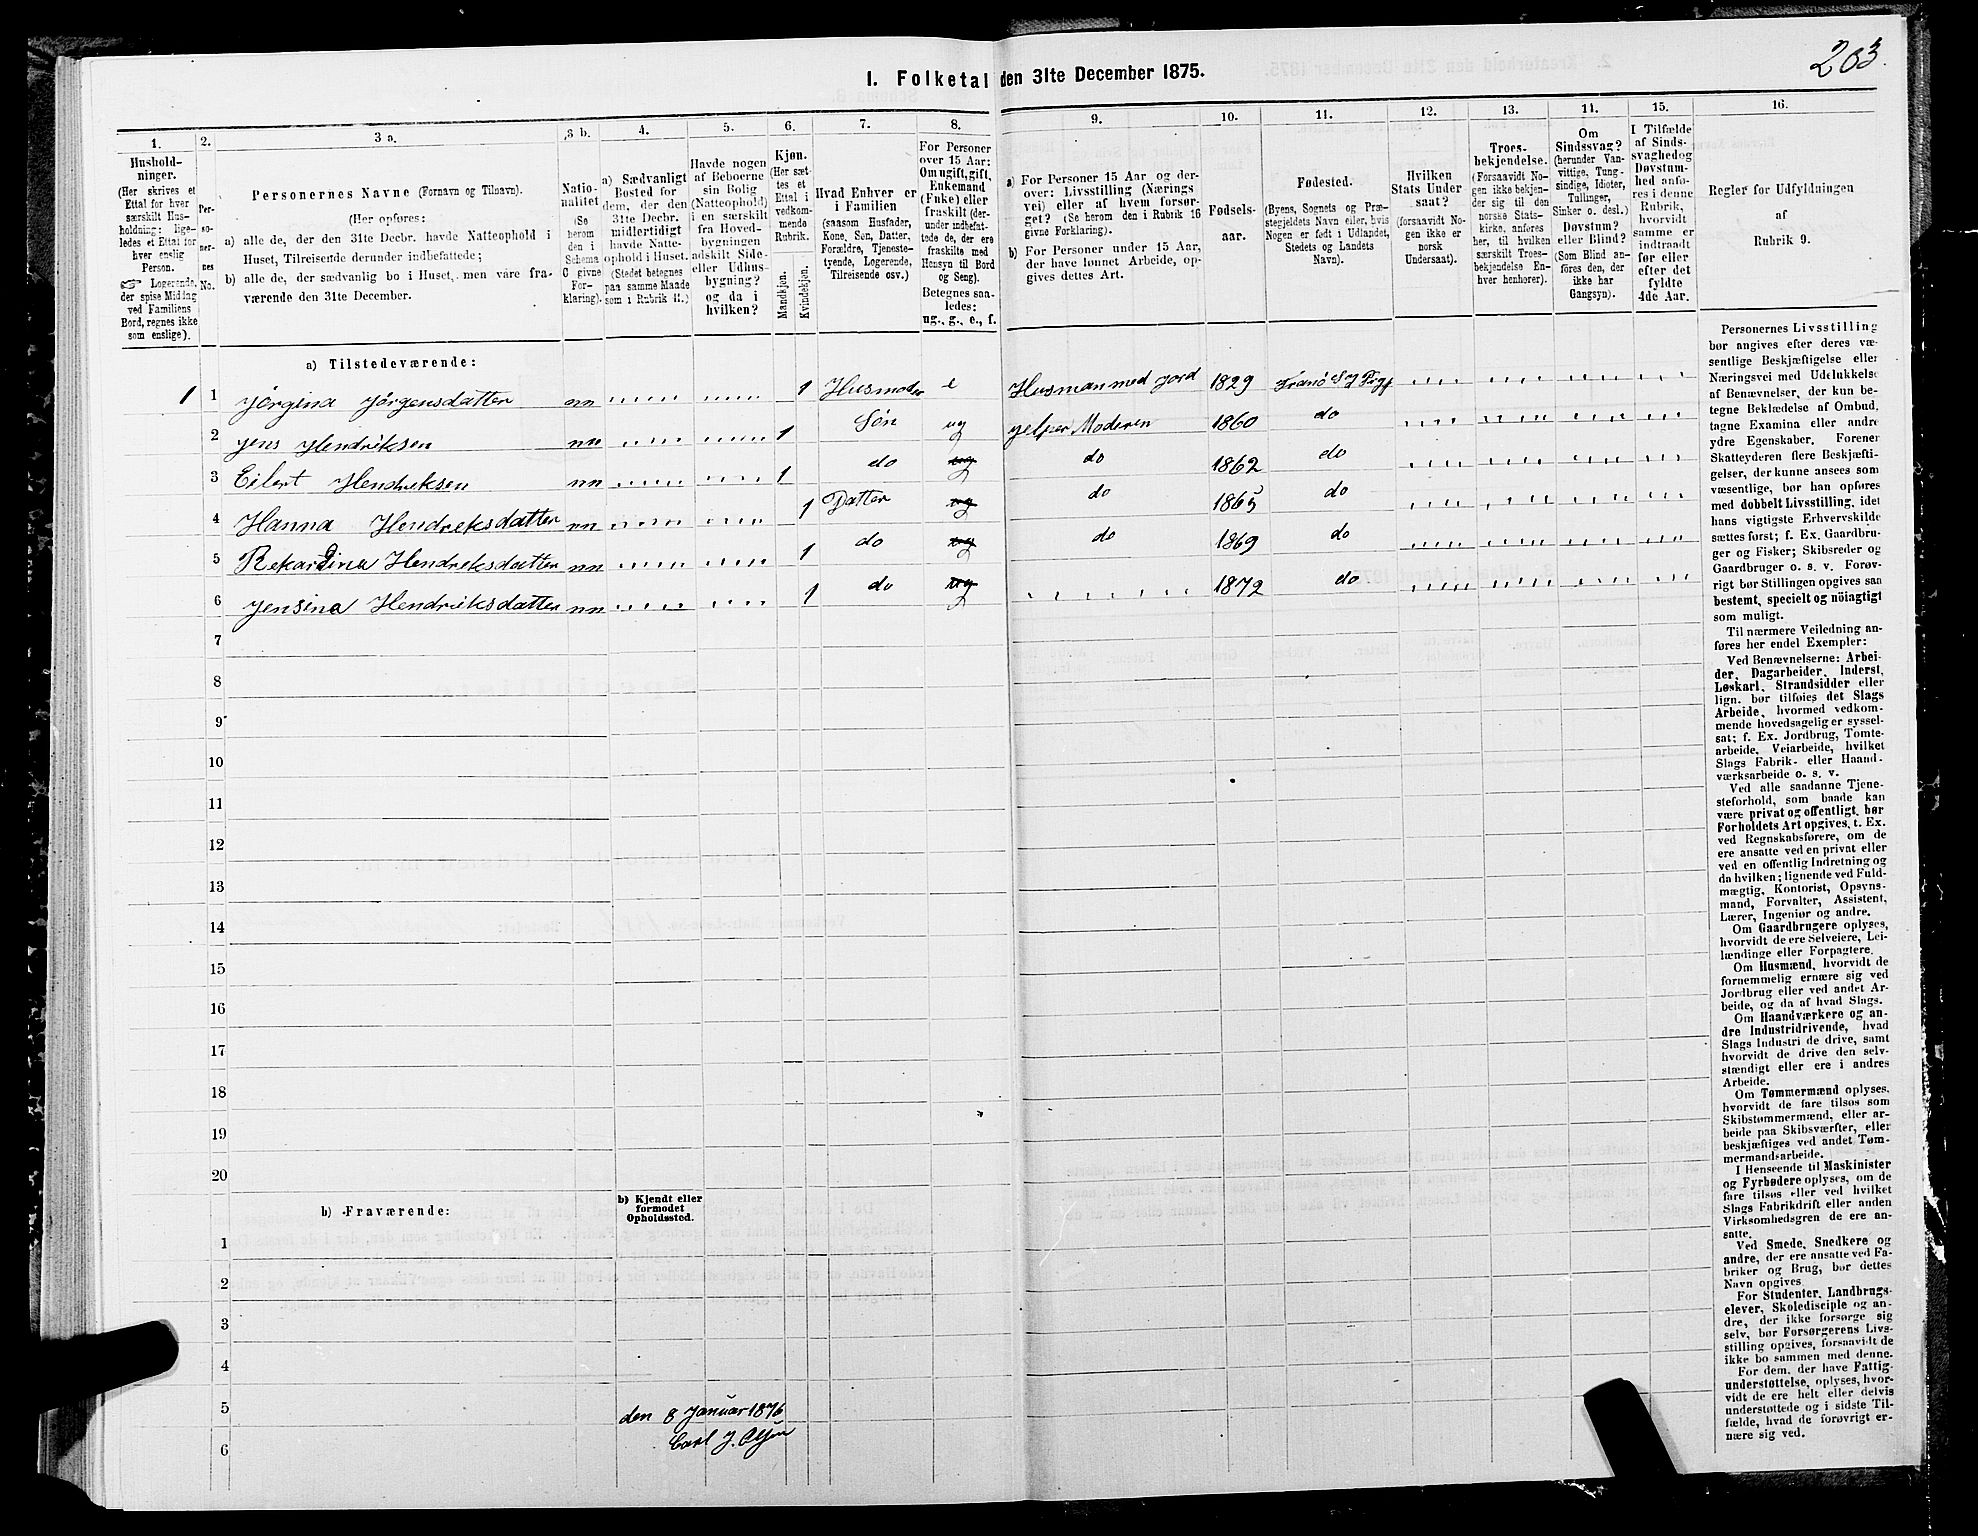 203.
I. Folketal den 31te December 1875.
1. 2. 3 a. 3 b. 4. 5. 6. 7. 8. 9. 10. 11. 12. 13. 14. 15. 16.
Hushold-
ninger.
(Her skrives et
Ettal for hver
særskilt Hus-
holdning: lige-
ledes et Ettal for
hver enslig
Person.
☞ Logerende,
der spise Middag
ved Familiens
Bord, regnes ikke
som enslige).
Per-
so-
ner-
nes
No.
Personernes Navne (Fornavn og Tilnavn).
(Her opføres:
a) alle de, der den 31te Decbr. havde Natteophold i
Huset, Tilreisende derunder indbefattede;
b) alle de, der sædvanlig bo i Huset, men vare fra-
værende den 31te December.
Natio-
nalitet
(Se
herom
den i
Schema
C givne
For-
klaring).
a) Sædvanligt
Bosted for
dem, der den
31te Decbr.
midlertidigt
havde Natte-
ophold i Huset.
(Stedet betegnes
paa samme Maade
som i Rubrik 11.)
Havde nogen
af Beboerne
sin Bolig
(Natteophold)
i en særskilt
fra Hoved-
bygningen
adskilt Side-
eller Udhus-
bygning?
og da i
hvilken?
Kjøn.
(Her sæt-
tes et
Ettal i
vedkom-
mende
Rubrik.
Mandkjøn.
Kvindekjøn.
Hvad Enhver er
i Familien
(saasom Husfader,
Kone, Søn, Datter.
Forældre, Tjeneste-
tyende, Logerende,
Tilreisende osv.)
For Personer
over 15 Aar:
Om ugift, gift,
Enkemand
(Enke) eller
fraskilt (der-
under indbefat-
tede de, der ere
fraskilte med
Hensyn til Bord
og Seng).
Betegnes saa-
ledes:
ug., g., e., f.
a) For Personer 15 Aar og der-
over: Livsstilling (Nærings
vei) eller af hvem forsør-
get? (Se herom den i Rubrik 16
givne Forklaring).
b) For Personer under 15 Aar,
der have lønnet Arbeide, op-
gives dettes Art.
Fødsels-
aar.
Fødested.
(Byens, Sognets og Præ-
stegjeldets Navn eller, hvis
Nogen er født i Udlandet,
Stedets og Landets
Navn).
Hvilken
Stats Under-
saat?
(forsaavidt No-
gen ikke er
norsk
Undersaat).
Troes-
bekjendelse.
(Forsaavidt No-
gen ikke bekjen-
der sig til den
norske Stats-
kirke, anføres
her, til hvilken
særskilt Troes-
bekjendelse En-
hver henhører).
Om
Sindssvag?
(herunder Van-
vittige, Tung-
sindige, Idioter,
Tullinger,
Sinker o. desl.)
Døvstum?
eller Blind?
(Som Blind an-
føres den, der
ikke har
Gangsyn).
I Tilfælde
af Sinds-
svaghed og
Døvstum-
hed anfø-
res i denne
Rubrik,
hvorvidt
samme er
indtraadt
før eller
efter det
fyldte
4de Aar.
Regler for Udfyldningen
af
Rubrik 9.
a) Tilstedeværende:
1 1 Jørgina Jørgensdatter nn 1 Husmoder e Husman med Jord 1829
2 Jens Hendriksen nn 1 Søn ug Jelper Moderen 1860 do
3 Eilert Hendriksen nn 1 do ug do 1862 do
4 Hanna Hendriksdatter nn 1 Datter ug do 1865 do
5 Rekardina Hendreksdatter nn 1 do ug do 1869 do
6 Jensina Hendriksdatter nn 1 do ug 1872 do
7
8
9
10
11
12
13
14
15
16
17
18
19
20
b) Fraværende:
b) Kjendt eller
formodet
Opholdssted.
1
2
3
4
5
6
den 8 Januar 1876
Carl J.
Personernes Livsstilling
bør angives efter deres væ-
sentlige Beskjæftigelse eller
Næringsvei med Udelukkelse
af Benævnelser, der kun be-
tegne Beklædelse af Ombud,
tagne Examina eller andre
ydre Egenskaber. Forener
Skatteyderen flere Beskjæfti-
gelser, der kunne ansees som
væsentlige, bør han opføres
med dobbelt Livsstilling, idet
hans vigtigste Erhvervskilde
sættes først; f. Ex. Gaardbru-
ger og Fisker; Skibsreder og
Gaardbruger o. s. v. Forøv-
rigt bør Stillingen opgives saa
bestemt, specielt og nöiagtigt
som muligt.
Til nærmere Veiledning an-
føres her endel Exempler:
Ved Benævnelserne: Arbei-
der, Dagarbeider, Inderst,
Løskarl, Strandsidder eller
lign. bør tilføies det Slags
Arbeide, hvormed vedkom-
mende hovedsagelig er syssel-
sat; f. Ex. Jordbrug, Tomte-
arbeide, Veiarbeide, hvilket
Slags Fabrik- eller Haand-
værksarbeide o. s. v.
Ved alle saadanne Tjene-
steforhold, som baade kan
være privat og offentligt, bør
Forholdets Art opgives, t. Ex.
ved Regnskabsførere, om de
ere ansatte ved en privat eller
ved en offentlig Indretning og
da hvilken; lignende ved Fuld-
mægtig, Kontorist, Opsyns-
mand, Forvalter, Assistent,
Lærer, Ingeniør og andre.
Om Gaardbrugere oplyses,
hvorvidt de ere Selveiere, Lei-
lændinge eller Forpagtere.
Om Husmænd, hvorvidt de
fornemmelig ernære sig ved
Jordbrug eller ved andet Ar-
beide, og da af hvad Slags.
Om Haandværkere og an-
dre Industridrivende, hvad
Slags Industri de drive, samt
hvorvidt de drive den selv-
stændigt eller ere i andres
Arbeide.
Om Tømmermænd oplyses,
hvorvidt de fare tilsøs som
Skibstømmermænd, eller ar-
beide paa Skibsværfter, eller
beskjæftiges ved andet Tøm-
mermandsarbeide.
I Henseende til Maskinister
og Fyrbødere oplyses, om de
fare tilsøs eller ved hvilket
Slags Fabrikdrift eller anden
Virksomhedsgren de ere an-
satte.
Ved Smede, Snedkere og
andre, der ere ansatte ved Fa-
briker og Brug, bør dettes
Navn opgives.
For Studenter, Landbrugs-
elever, Skoledisciple og an-
dre, der ikke forsørge sig
selv, bør Forsørgerens Livs-
stilling opgives, forsaavidt de
ikke bo sammen med denne.
For dem, der have Fattig-
understøttelse, oplyses, hvor-
vidt de ere helt eller delvis
understøttede og i sidste Til-
fælde, hvad de forøvrigt er-
nære sig ved.